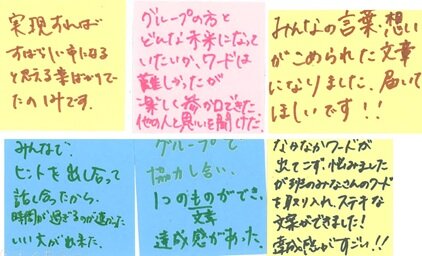 実現すれば
すばらしい市になる
と思える案ばかりで
たのしみです。
グループの方と
どんな未来になって
いたいか、ワードは
難しかったが
楽しく参加できた
他の人と思いを聞けた。
みんなの言葉、想い
がこめられた文章
になりました。届いて
ほしいです!!
みんなで、
ヒントを出し合って
話し合ったから、
時間が過ぎるのが速かった
いい文が出来た。
グループで
協力し合い、
1つのものができ、
文章
達成感があった。
なかなかワードが
出てこず、悩みました
が班のみなさんのワード
を取り入れ、ステキな
文案ができました!
達成感がすごい!!